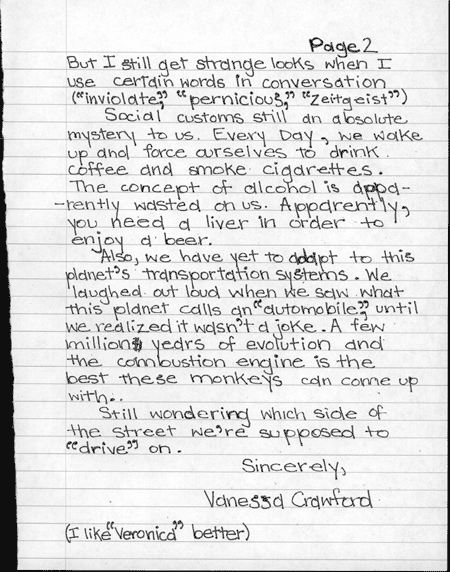 Page 2
But I still get strange looks when I
use certain words in conversation
("inviolate," "pernicious," "Zeitgeist")
Social customs still an absolute
mystery to us. Every Day, we wake
up and force ourselves to drink
coffee and smoke cigarettes.
The concept of alcohol is appa-
-rently wasted on us. Apparently,
you need a liver in order to
enjoy a beer.
Also, we have yet to adapt to this
planet's transportation systems. We
laughed out loud when we saw what
this planet calls an "automobile," until
we realized it wasn't a joke. A few
million years of evolution and
the combustion engine is the
best these monkeys can come up
with..
Still wondering which side of
the street we're supposed to
"drive" on.
Sincerely,
Vanessa Crawford
(I like "Veronica" better)